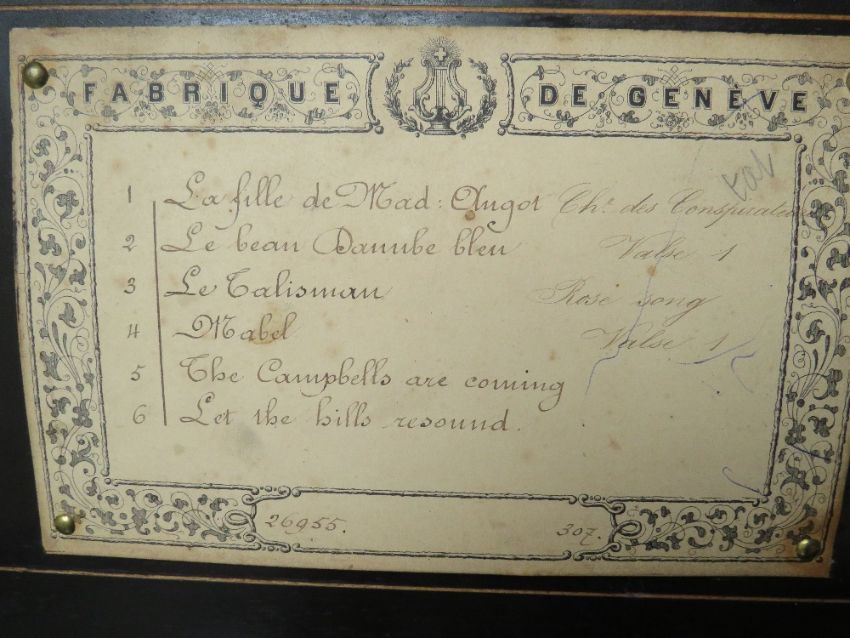 FABRIQUE DE GENÈVE
1 La fille de Mad: Angot Chr. des Conspirateurs
2 Le beau Danube bleu Valse 1
3 Le Talisman Rose song
4 Mabel Valse 1
5 The Campbells are coming
6 Let the hills resound.
26955. 307.